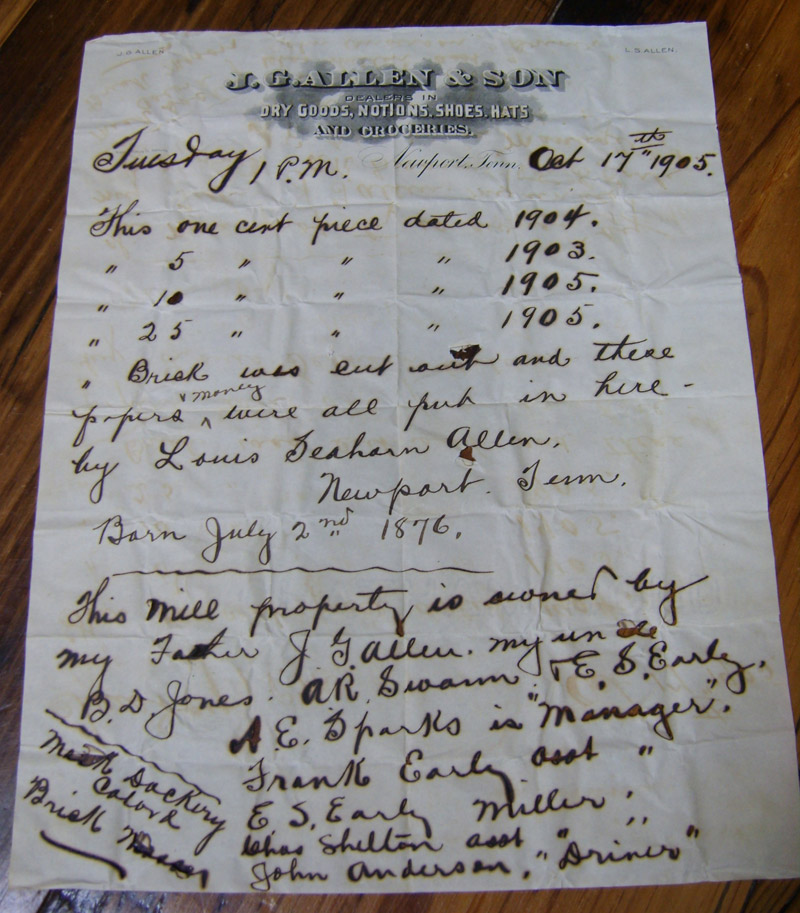 J.G. ALLEN.
L.S. ALLEN.
J. G. ALLEN & SON
DEALERS IN
DRY GOODS, NOTIONS, SHOES, HATS
AND GROCERIES.
Tuesday 1 P.M. Newport, Tenn. Oct 17th 1905.
This one cent piece dated 1904.
" 5 " " " 1903.
" 10 " " " 1905.
" 25 " " " 1905.
" Brick was cut out and these
papers ^ money were all put in here -
by Louis Seahorn Allen.
Newport. Tenn.
Born July 2nd 1876.
This mill property is owned by
my Father J G. Allen. my uncle
B. D. Jones. A R. Swann. + E. S. Early.
A. E. Sparks is "Manager".
Frank Early asst "
E S. Early Miller "
Chas Shelton asst "
John Anderson, "Driner"
Mack Dockery
Colord
Brick Mason